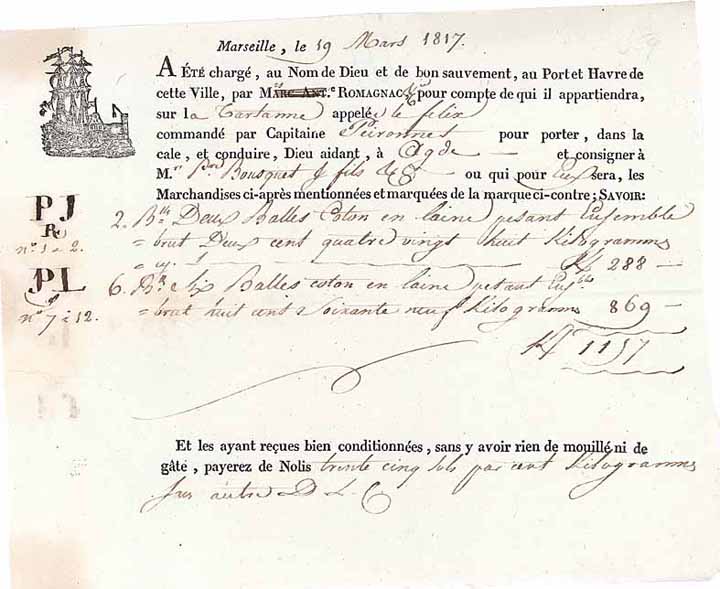 Marseille, le 19 Mars 1817.
A ÉTÉ chargé, au Nom de Dieu et de bon sauvement, au Port et Havre de
cette Ville, par M. MARC ANT.e ROMAGNAC pour compte de qui il appartiendra,
sur la Tartanne appelée le félix
commandé par Capitaine Peironnet pour porter, dans la
cale, et conduire, Dieu aidant, à Agde et consigner à
M.rs Bousquet & fils & Cie ou qui pour Eux sera, les
Marchandises ci-après mentionnées et marquées de la marque ci-contre; SAVOIR:
PJ
n° 1 à 2.
2. Blles Deux Balles Coton en laine pesant Ensemble
= brut Deux cent quatre vingt huit Kilogrammes
K 288 —
PL
n° 7 à 12.
6. Blles Six Balles coton en laine pesant Ensble
= brut huit cent Soixante neuf Kilogramm 869 —
K 1157
Et les ayant reçues bien conditionnées, sans y avoir rien de mouillé ni de
gâté, payerez de Nolis trente cinq sols par cent Kilogrammes